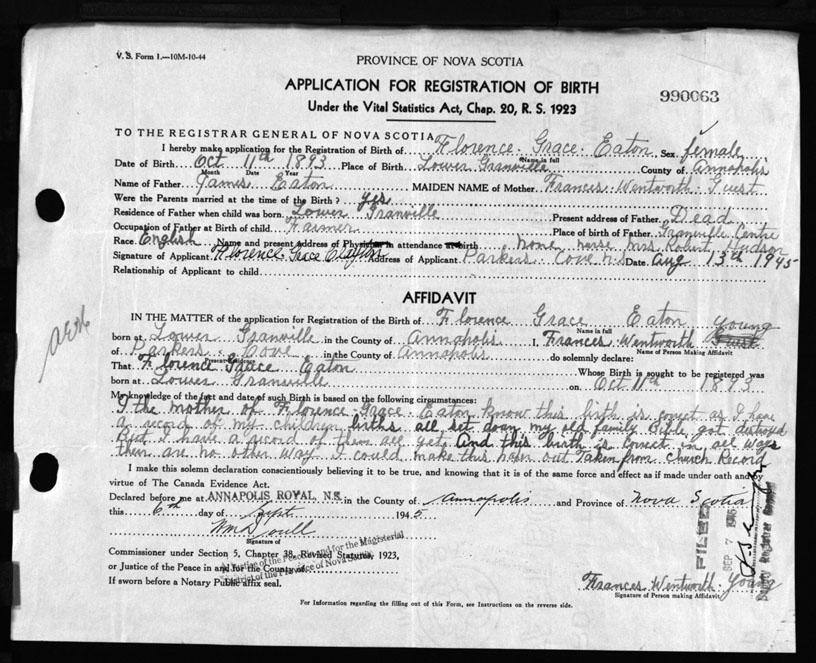 V. S. Form 1.—10M-10-44
PROVINCE OF NOVA SCOTIA
APPLICATION FOR REGISTRATION OF BIRTH
990063
Under the Vital Statistics Act, Chap. 20, R. S. 1923
TO THE REGISTRAR GENERAL OF NOVA SCOTIA
I hereby make application for the Registration of Birth of Florence Grace Eaton Sex female
Name in full
Date of Birth Oct 11th 1893 Place of Birth Lower Granville County of Annapolis
Month Date Year
Name of Father James Eaton MAIDEN NAME of Mother Frances Wentworth Guest
Were the Parents married at the time of the Birth? yes
Residence of Father when child was born Lower Granville Present address of Father Dead
Occupation of Father at Birth of child Farmer Place of birth of Father Granville Centre
Race English Name and present address of Physician in attendance at birth none nurse Mrs Robert Hudson
Signature of Applicant Florence Grace Clayton Address of Applicant Parkers Cove N.S Date Aug 13th 1945
Relationship of Applicant to child
AFFIDAVIT
IN THE MATTER of the application for Registration of the Birth of Florence Grace Eaton young
Name in full
born at Lower Granville in the County of Annapolis I, Frances Wentworth Guest
Name of Person Making Affidavit
of Parkers Cove in the County of Annapolis do solemnly declare:
Present Residence
That Florence Grace Eaton Whose Birth is sought to be registered was
born at Lower Granville on Oct 11th 1893
My knowledge of the fact and date of such Birth is based on the following circumstances:
I the mother of Florence Grace Eaton know this birth is correct as I have
a record of my children births all set down my old family Bible got destroyed
But I have a record of them all yet. And this birth is correct in all ways
there are no other way I could make this out Taken from Church Record
I make this solemn declaration conscientiously believing it to be true, and knowing that it is of the same force and effect as if made under oath and by
virtue of The Canada Evidence Act.
Declared before me at ANNAPOLIS ROYAL, N.S. in the County of Annapolis and Province of Nova Scotia
this 6th day of Sept 1945
Signature of
Commissioner under Section 5, Chapter 38, Revised Statutes, 1923,
or Justice of the Peace in and for the County of
A Justice of the Peace in and for the Magisterial
District of the Province of Nova Scotia
If sworn before a Notary Public affix seal.
FILED
SEP 7 1945
Deputy Registrar General
Frances Wentworth Young
Signature of Person making Affidavit
For Information regarding the filling out of this Form, see Instructions on the reverse side.